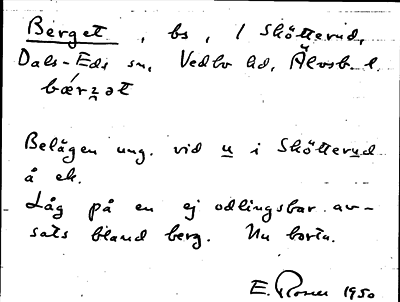 Berget, bs, / Skötterud,
Dals-Eds sn, Vedbo hd, Älvsb. l.
bærʒət
Belägen ung. vid u i Skötterud
å ek.
Låg på en ej odlingsbar av-
sats bland berg. Nu borta.
E. Rosen 1950